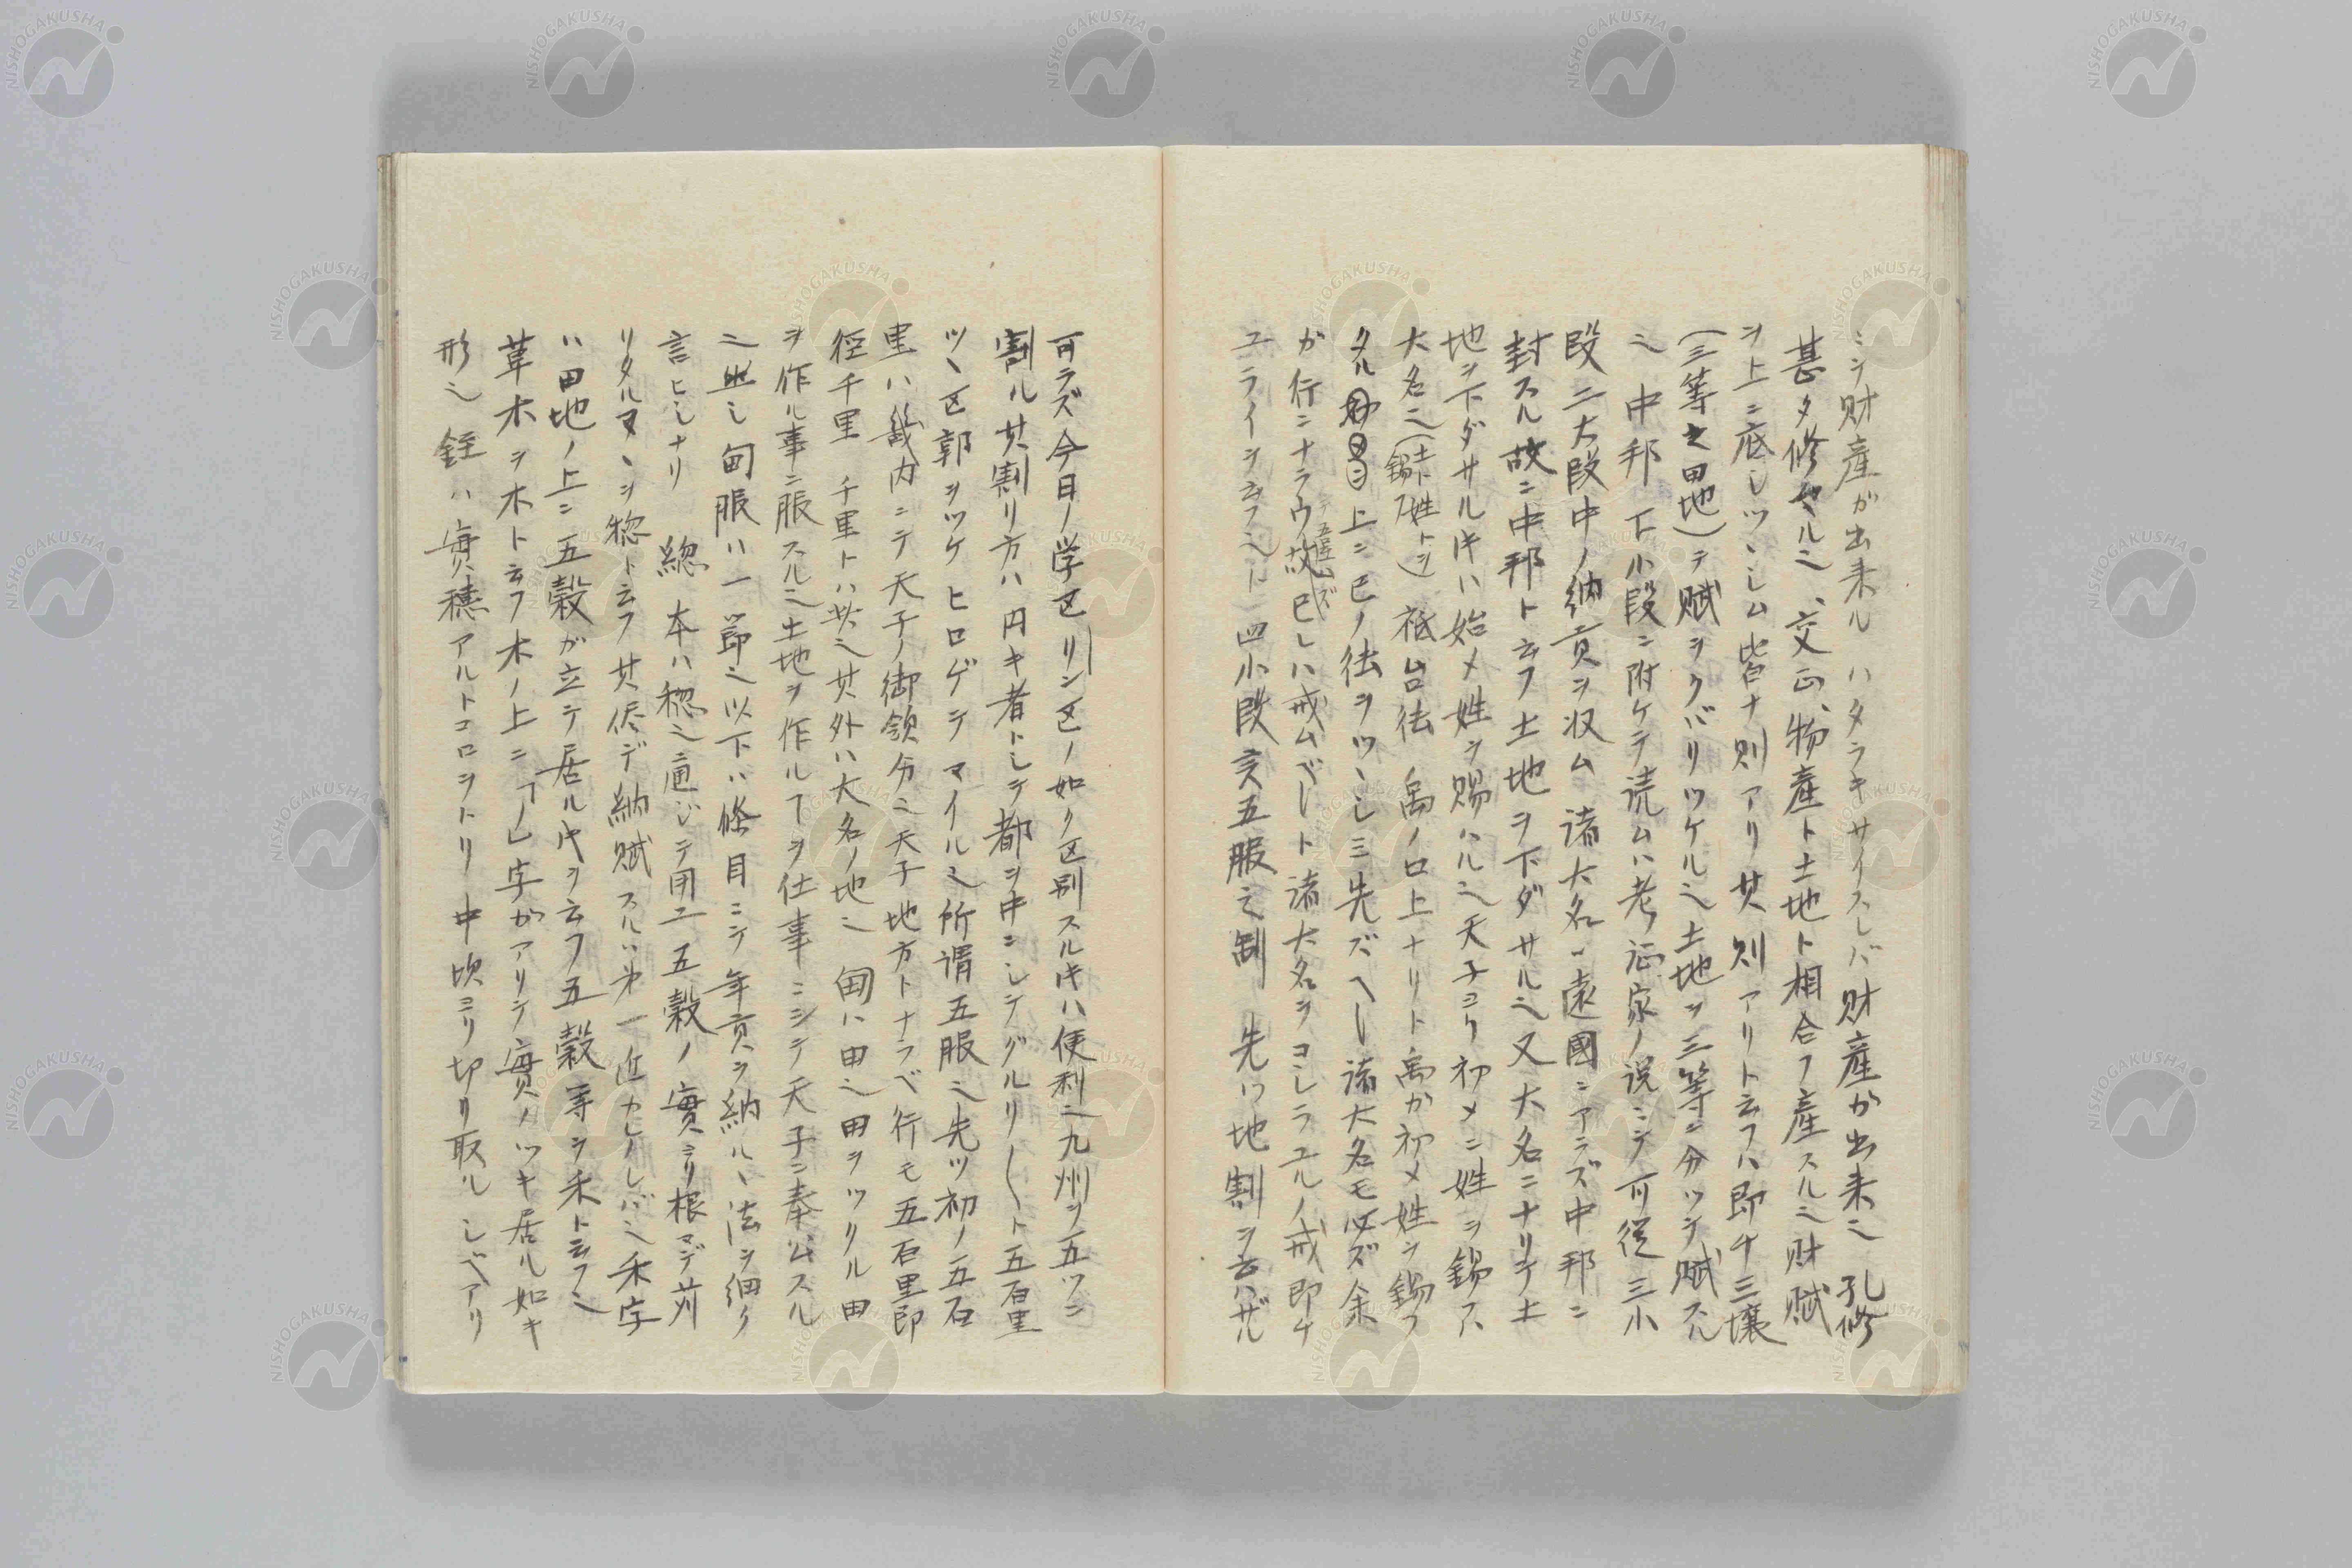 ミヲ財産ガ出来ル ハタラキサイスレバ財産か出来ニ 孔修
甚タ修マルニ、交正、物産ト土地ト相合フ産スルニ財賦
ヲ上ニ底シツヽシム皆ナ則アリ其則アリト云フハ即チ三壤
(三等之田地)テ賦ヲクバリツケルニ土地ヲ三等ニ分ツテ賦スル
ニ 中邦 下小段ニ附ケテ読ムハ考ノ証家ノ説ニシテ可従 三小
段二大段中ノ納貢ヲ収ム 諸大名ハ遠國ニアラズ中邦ニ
封スル故ニ中邦ト云フ土地ヲ下ダサルニ又大名ニナリテ土
地ヲ下ダサル片ハ始メ姓ヲ賜ハルニ天子ヨリ初メニ姓ヲ錫ス
大名ニ(土ト姓トヲ錫フ) 祗台徳 禹ノ口上ナリト禹か初メ姓ヲ錫フ
タル 上ニ己ノ徳ヲツヽシミ先ズヘシ諸大名モ必ズ余
が行ニナラウ故己レハ戒ムベシト諸大名ヲコシラユルノ戒即チ
ユライヲ云フニト 四小段亥五服之制 先ハ地割ヲ云ハザル
可ラズ今日ノ学区リン区ノ如ク区別スル片ハ便利ニ九州ヲ五ツニ
割ル其割リ方ハ円キ者トシテ都ヲ中ニシテグルリ〱ト五百里
ツヽ区郭ヲツケヒロゲテマイルニ所謂五服ニ先ツ初ノ五百
里ハ畿内ニテ天子ノ御領分ニ天子地方トナラベ行モ五百里即
径千里 千里トハ共ニ其外ハ大名ノ地ニ 甸ハ田ニ田ヲツクル田
ヲ作ル事ニ服スルニ土地ヲ作ルヿヲ仕事ニシテ天子ニ奉公スル
ニ此レ甸服ハ一節ニ以下ハ條目ニテ年貢ヲ納ルヽ法ヲ細ク
言ヒシナリ 緫 本ハ稔ニ通ジテ用エ五穀ノ實ヨリ根マデ苅
リタルマヽヲ惣ト云フ其侭デ納賦スルハ第一近カケレバニ禾字
ハ田地ノ上ニ五穀が立テ居ル片ヲ云フ五穀等ヲ禾ト云フニ
草木ヲ木ト云フ木ノ上ニ「ノ」字がアリテ實ノツキ居ル如キ
形ニ 銍ハ實穗アルトコロヲトリ中頃ヨリ切リ取ル シベアリ